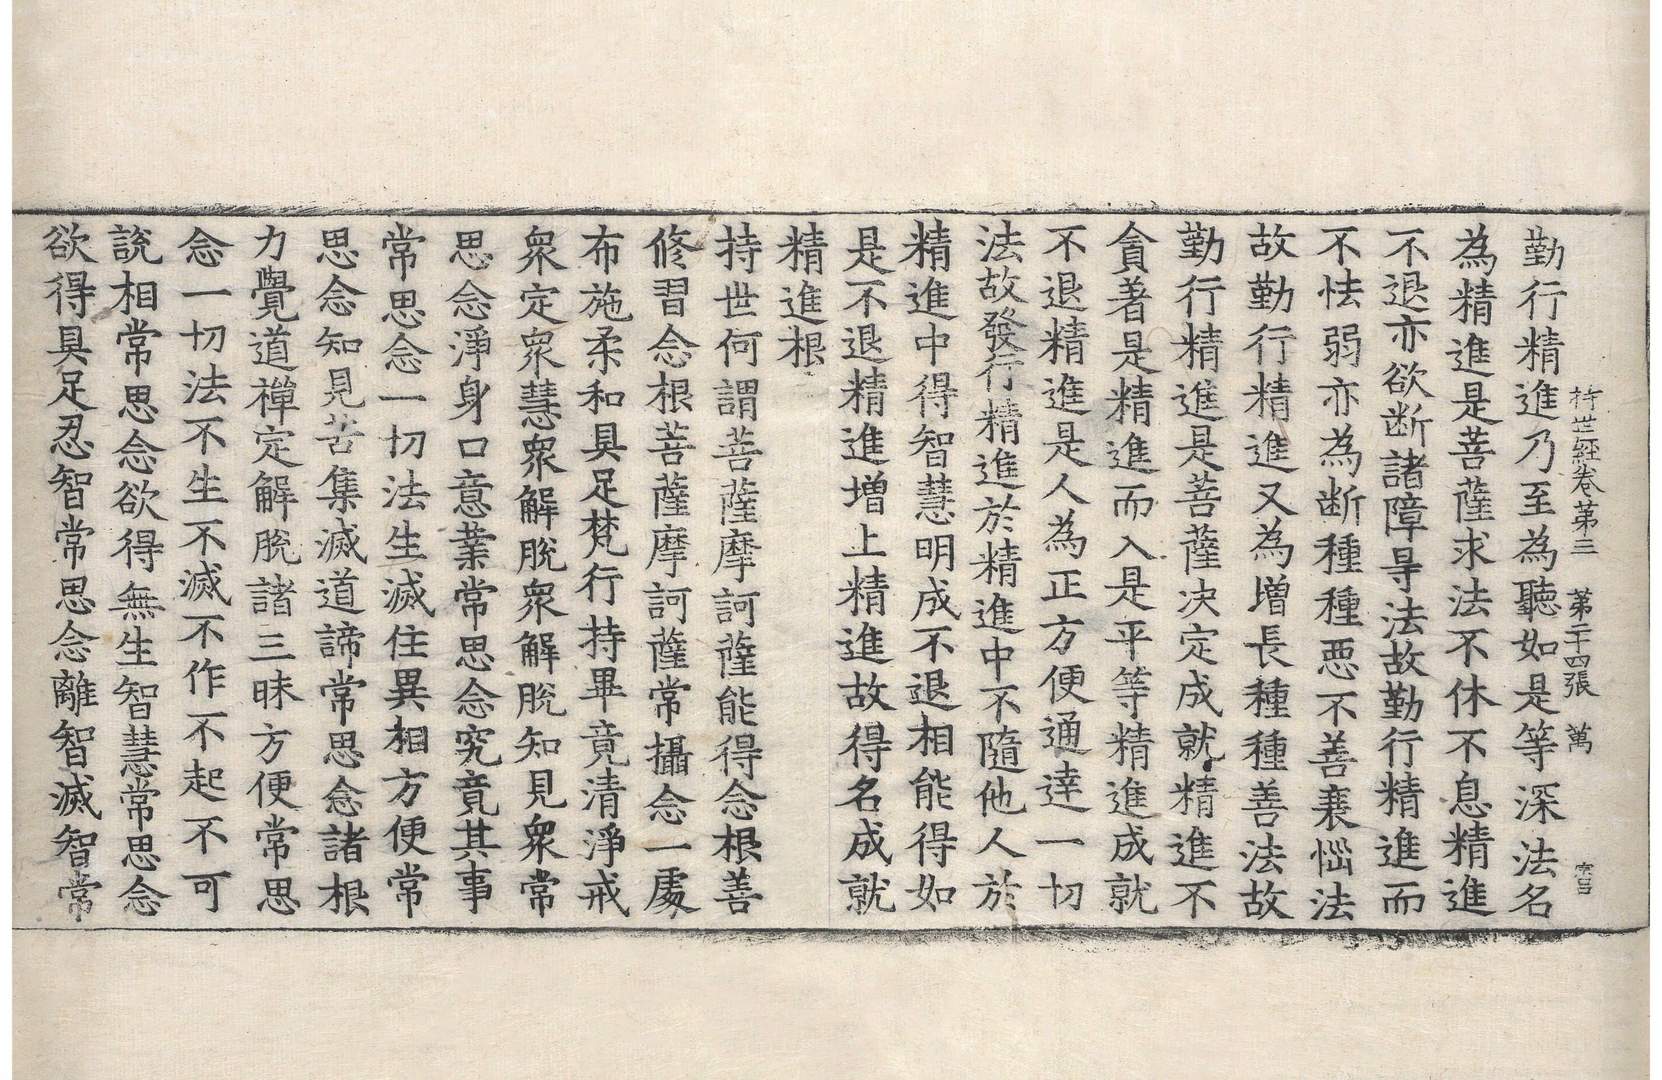 持世經卷第三 第二十四張 萬
勤行精進乃至為聽如是等深法名
為精進是菩薩求法不休不息精進
不退亦欲断諸障㝵法故勤行精進而
不怯弱亦為断種種惡不善衰惱法
故勤行精進又為增長種種善法故
勤行精進是菩薩決定成就精進不
貪著是精進而入是平等精進成就
不退精進是人為正方便通達一切
法故發行精進於精進中不隨他人於
精進中得智慧明成不退相能得如
是不退精進增上精進故得名成就
精進根
持世何謂菩薩摩訶薩能得念根善
修習念根菩薩摩訶薩常攝念一處
布施柔和具足梵行持畢竟清淨戒
衆定衆慧衆解脫衆解脫知見衆常
思念淨身口意業常思念究竟其事
常思念一切法生滅住異相方便常
思念知見苦集滅道諦常思念諸根
力覺道禪定解脫諸三昧方便常思
念一切法不生不滅不作不起不可
說相常思念欲得無生智慧常思念
欲得具足忍智常思念離智滅智常